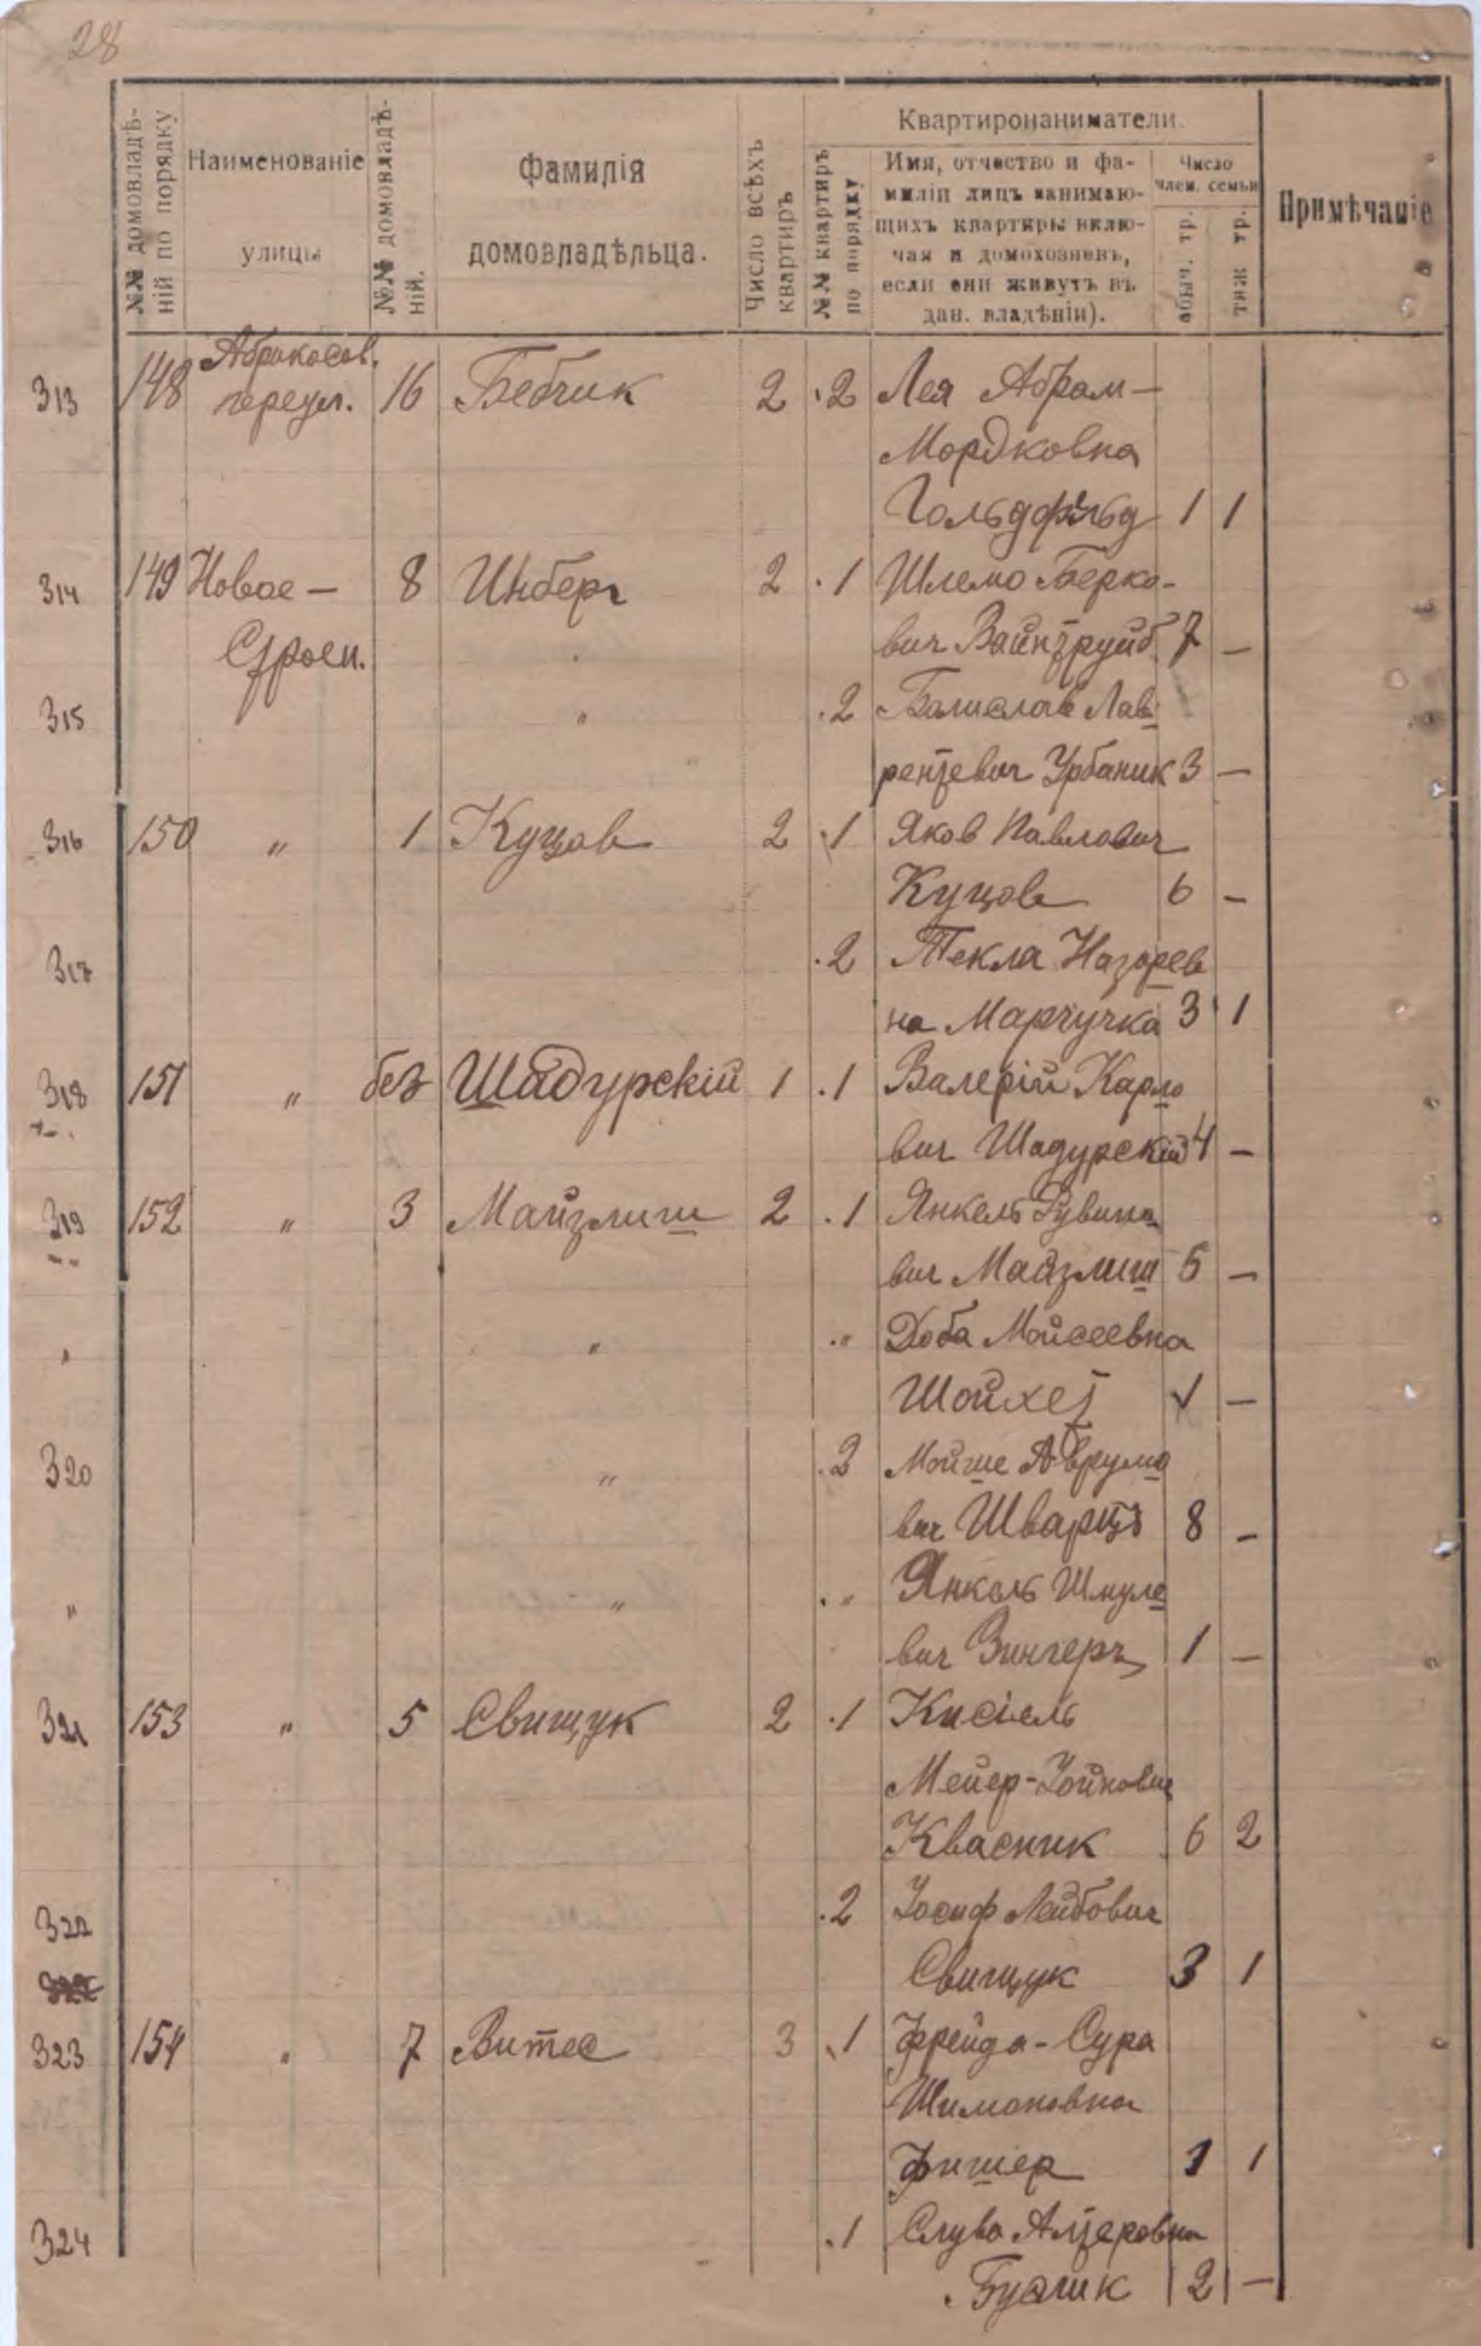 28
№№ домовладѣ-
ній по порядку
Наименованіе
улицы
№№ домовладѣ-
ній.
Фамилія
домовладѣльца.
Число всѣхъ
квартиръ
Квартиронаниматели.
№№ квартиръ
по порядку
Имя, отчество и фа-
миліи лицъ занимаю-
щихъ квартиры вклю-
чая и домохозяевъ,
если они живутъ въ
дан. владѣніи).
Число
член. семьи
обыч. тр.
тяж тр.
Примѣчаніе
Абрикосов.
313 148 переул. 16 Бебчик 2 2 Лея Абрам-
Мордковна
Гольдфельд 1 1
314 149 Новое — 8 Инберг 2 1 Шлемо Берко-
Строен. вич Вайнтруйб 7 —
315 " 2 Болислав Лав
рентевич Урбаник 3 —
316 150 " 1 Куцов 2 1 Яков Павлович
Куцов 6 —
317 2 Текла Назарев
на Марчучка 3 1
318 151 " без Шадурскій 1 1 Валерій Карло
вич Шадурскій 4 —
319 152 " 3 Майзлиш 2 1 Янкель Рувино
вич Майзлиш 5 —
" " " Доба Мойсеевна
Шойхет 1 —
320 " 2 Мойше Аврумо
вич Шварцъ 8 —
" " " Янкель Шмуле
вич Зингеръ 1 —
321 153 " 5 Свищук 2 1 Кисіель
Мейер-Хойнович
Квасник 6 2
322 2 Іосиф Лейбович
Свищук 3 1
323 154 " 7 Витес 3 1 Фрейда-Сура
Шимоновна
Фишер 1 1
324 1 Слува Алтеровна
Бузлик 2 —